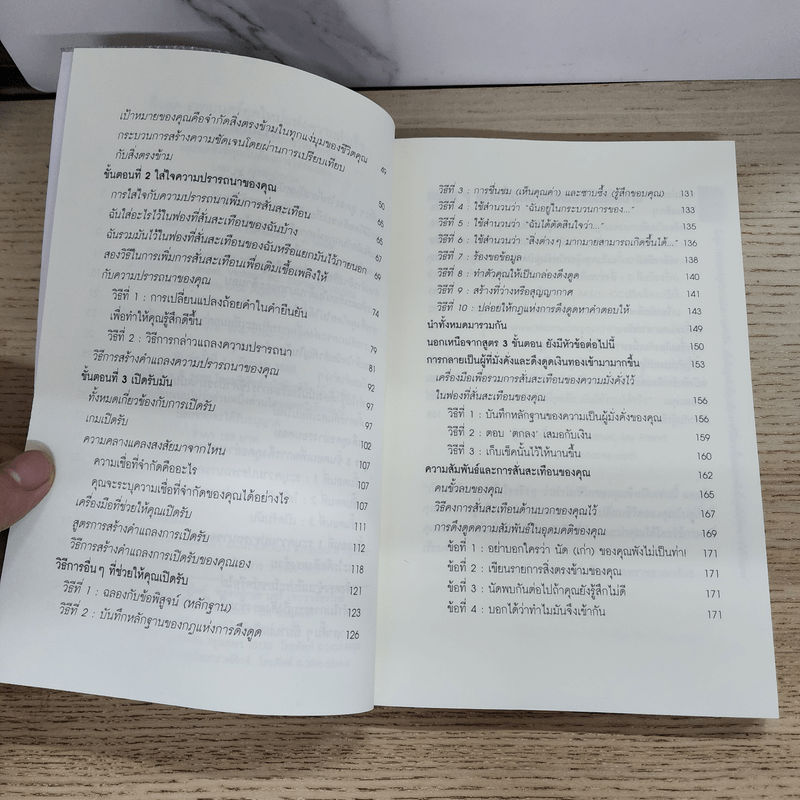 เป้าหมายของคุณคือจำกัดสิ่งตรงข้ามในทุกแง่มุมของชีวิตคุณ
กระบวนการสร้างความชัดเจนโดยผ่านการเปรียบเทียบ
กับสิ่งตรงข้าม 49
ขั้นตอนที่ 2 ใส่ใจความปรารถนาของคุณ
การใส่ใจกับความปรารถนาเพิ่มการสั่นสะเทือน 50
ฉันใส่อะไรไว้ในฟองที่สั่นสะเทือนของฉันบ้าง 65
ฉันรวมมันไว้ในฟองที่สั่นสะเทือนของฉันหรือแยกมันไว้ภายนอก 65
สองวิธีในการเพิ่มการสั่นสะเทือนเพื่อเติมเชื้อเพลิงให้ 67
กับความปรารถนาของคุณ 69
วิธีที่ 1 : การเปลี่ยนแปลงถ้อยคำในคำยืนยัน
เพื่อทำให้คุณรู้สึกดีขึ้น 74
วิธีที่ 2 : วิธีการกล่าวแถลงความปรารถนา
วิธีการสร้างคำแถลงความปรารถนาของคุณ 79
ขั้นตอนที่ 3 เปิดรับมัน 81
ทั้งหมดเกี่ยวข้องกับการเปิดรับ 92
เกมเปิดรับ 97
ความคลางแคลงสงสัยมาจากไหน 97
ความเชื่อที่จำกัดคืออะไร 102
คุณจะระบุความเชื่อที่จำกัดของคุณได้อย่างไร 107
เครื่องมือที่ช่วยให้คุณเปิดรับ 107
สูตรการสร้างคำแถลงการเปิดรับ 111
วิธีการสร้างคำแถลงการเปิดรับของคุณเอง 112
วิธีการอื่นๆ ที่ช่วยให้คุณเปิดรับ 118
วิธีที่ 1 : ฉลองกับข้อพิสูจน์ (หลักฐาน) 121
วิธีที่ 2 : บันทึกหลักฐานของกฎแห่งการดึงดูด 123
126
วิธีที่ 3 : การชื่นชม (เห็นคุณค่า) และซาบซึ้ง (รู้สึกขอบคุณ) 131
วิธีที่ 4 : ใช้สำนวนว่า "ฉันอยู่ในกระบวนการของ..." 133
วิธีที่ 5 : ใช้สำนวนว่า "ฉันได้ตัดสินใจว่า..." 135
วิธีที่ 6 : ใช้สำนวนว่า "สิ่งต่างๆ มากมายสามารถเกิดขึ้นได้..." 136
วิธีที่ 7 : ร้องขอข้อมูล 138
วิธีที่ 8 : ทำตัวคุณให้เป็นกล่องดึงดูด 140
วิธีที่ 9 : สร้างที่ว่างหรือสุญญากาศ 141
วิธีที่ 10 : ปล่อยให้กฎแห่งการดึงดูดหาคำตอบให้ 143
นำทั้งหมดมารวมกัน 149
นอกเหนือจากสูตร 3 ขั้นตอน ยังมีหัวข้อต่อไปนี้ 150
การกลายเป็นผู้ที่มั่งคั่งและดึงดูดเงินทองเข้ามามากขึ้น 153
เครื่องมือเพื่อรวมการสั่นสะเทือนของความมั่งคั่งไว้
ในฟองที่สั่นสะเทือนของคุณ 156
วิธีที่ 1 : บันทึกหลักฐานของความเป็นผู้มั่งคั่งของคุณ 156
วิธีที่ 2 : ตอบ 'ตกลง' เสมอกับเงิน 159
วิธีที่ 3 : เก็บเช็คนั้นไว้ให้นานขึ้น 160
ความสัมพันธ์และการสั่นสะเทือนของคุณ 162
คนขั้วลบของคุณ 165
วิธีคงการสั่นสะเทือนด้านบวกของคุณไว้ 167
การดึงดูดความสัมพันธ์ในอุดมคติของคุณ 169
ข้อที่ 1 : อย่าบอกใครว่า นัด (เก่า) ของคุณพังไม่เป็นท่า! 171
ข้อที่ 2 : เขียนรายการสิ่งตรงข้ามของคุณ 171
ข้อที่ 3 : นัดพบกันต่อไปถ้าคุณยังรู้สึกไม่ดี 171
ข้อที่ 4 : บอกได้ว่าทำไมมันจึงเข้ากัน 171